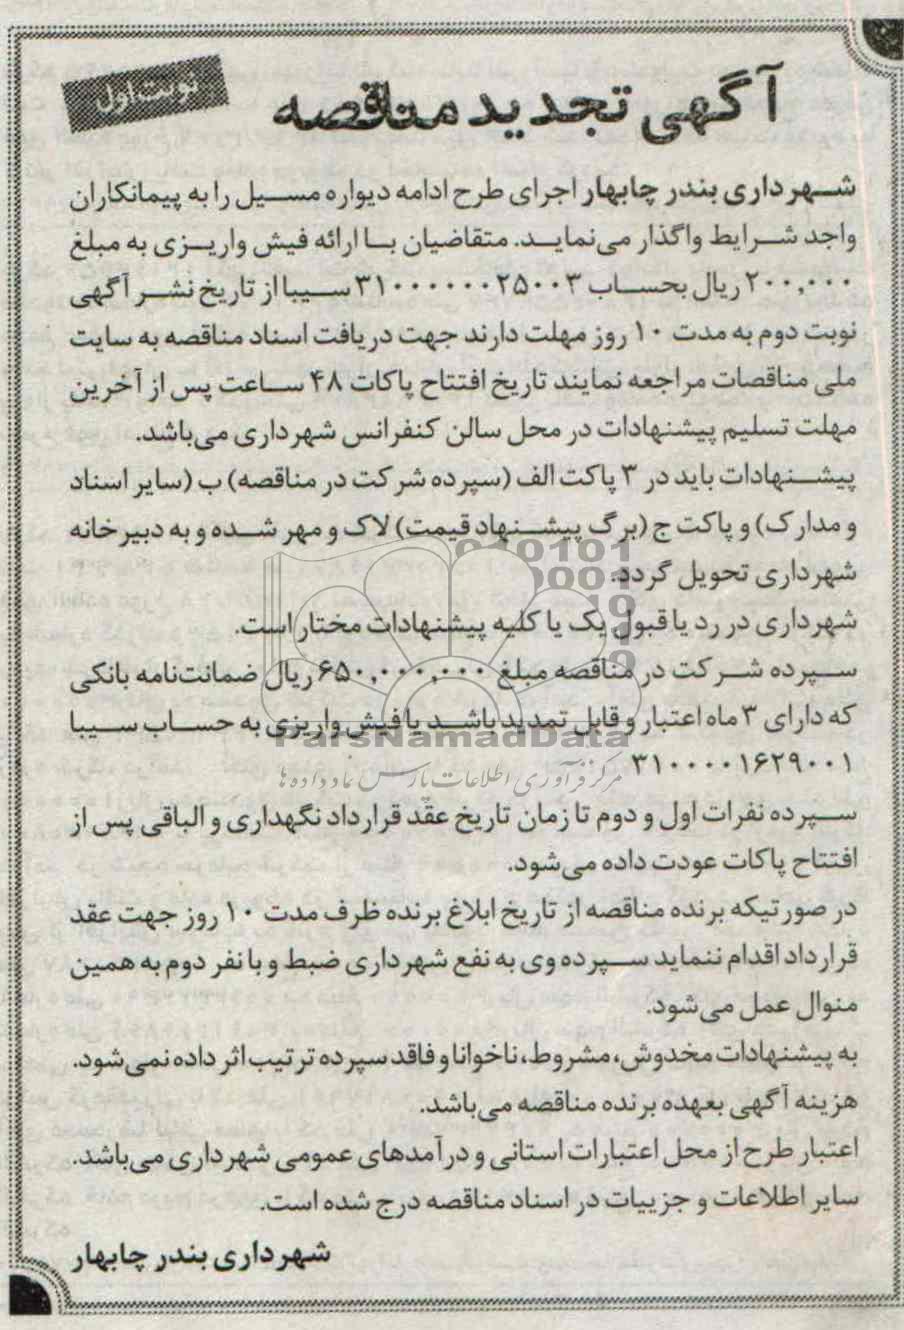 نوبت اول
آگهی تجدید مناقصه
شهرداری بندر چابهار اجرای طرح ادامه دیواره مسیل را به پیمانکاران
واجد شرایط واگذار می‌نماید. متقاضیان با ارائه فیش واریزی به مبلغ
۲۰۰,۰۰۰ ریال بحساب ۳۱۰۰۰۰۰۰۲۵۰۰۳ سیبا از تاریخ نشر آگهی
نوبت دوم به مدت ۱۰ روز مهلت دارند جهت دریافت اسناد مناقصه به سایت
ملی مناقصات مراجعه نمایند تاریخ افتتاح پاکات ۴۸ ساعت پس از آخرین
مهلت تسلیم پیشنهادات در محل سالن کنفرانس شهرداری می‌باشد.
پیشنهادات باید در ۳ پاکت الف (سپرده شرکت در مناقصه) ب (سایر اسناد
و مدارک) و پاکت ج (برگ پیشنهاد قیمت) لاک و مهر شده و به دبیرخانه
شهرداری تحویل گردد.
شهرداری در رد یا قبول یک یا کلیه پیشنهادات مختار است.
سپرده شرکت در مناقصه مبلغ ۶۵۰,۰۰۰,۰۰۰ ریال ضمانت‌نامه بانکی
که دارای ۳ ماه اعتبار و قابل تمدید باشد یا فیش واریزی به حساب سیبا
۳۱۰۰۰۰۱۶۲۹۰۰۱
ParsNamadData
مرکز فرآوری اطلاعات پارس نماد داده ها
سپرده نفرات اول و دوم تا زمان تاریخ عقد قرارداد نگهداری و الباقی پس از
افتتاح پاکات عودت داده می‌شود.
در صورتیکه برنده مناقصه از تاریخ ابلاغ برنده ظرف مدت ۱۰ روز جهت عقد
قرارداد اقدام ننماید سپرده وی به نفع شهرداری ضبط و با نفر دوم به همین
منوال عمل می‌شود.
به پیشنهادات مخدوش، مشروط، ناخوانا و فاقد سپرده ترتیب اثر داده نمی‌شود.
هزینه آگهی بعهده برنده مناقصه می‌باشد.
اعتبار طرح از محل اعتبارات استانی و درآمدهای عمومی شهرداری می‌باشد.
سایر اطلاعات و جزییات در اسناد مناقصه درج شده است.
شهرداری بندر چابهار